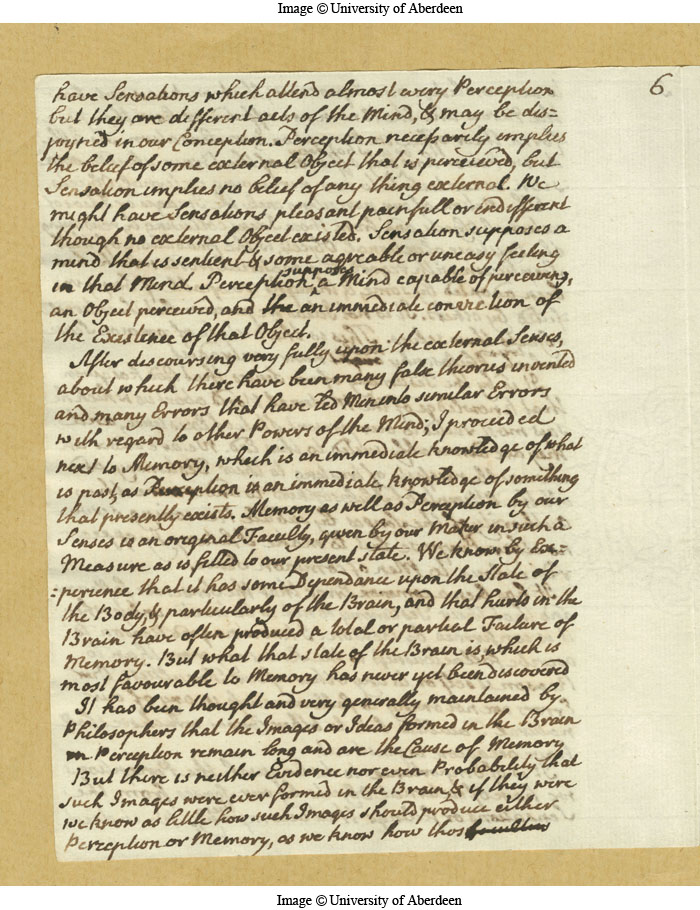 Image © University of Aberdeen
6
have Sensations which attend almost every Perception
but they are different acts of the Mind, & may be dis=
joyned in our Conception. Perception necessarily implies
the belief of some external Object that is perceived, but
Sensation implies no belief of any thing external. We
might have Sensations pleasant painfull or indifferent
though no external Object existed. Sensation supposes a
mind that is sentient & some agreable or uneasy feeling
in that Mind. Perception supposes a Mind capable of perceiving,
an Object perceived, and the an immediate conviction of
the Existence of that Object.
After discoursing very fully upon the external Senses,
about which there have been many false theories invented
and many Errors that have led Men into similar Errors
with regard to other Powers of the Mind; I proceeded
next to Memory, which is an immediate knowledge of what
is past, as Perception is an immediate knowledge of something
that presently exists. Memory as well as Perception by our
Senses is an original Faculty, given by our Maker in such a
Measure as is fitted to our present state. We know by Ex=
=perience that it has some Dependance upon the State of
the Body, & particularly of the Brain, and that hurts in the
Brain have often produced a total or partial Failure of
Memory. But what that state of the Brain is which is
most favourable to Memory has never yet been discovered
It has been thought and very generally maintained by
Philosophers that the Images or Ideas formed in the Brain
in Perception remain long and are the Cause of Memory
But there is neither Evidence nor even Probability that
such Images were ever formed in the Brain, & if they were
we know as little how such Images should produce either
Perception or Memory, as we know how thos faculties
Image © University of Aberdeen